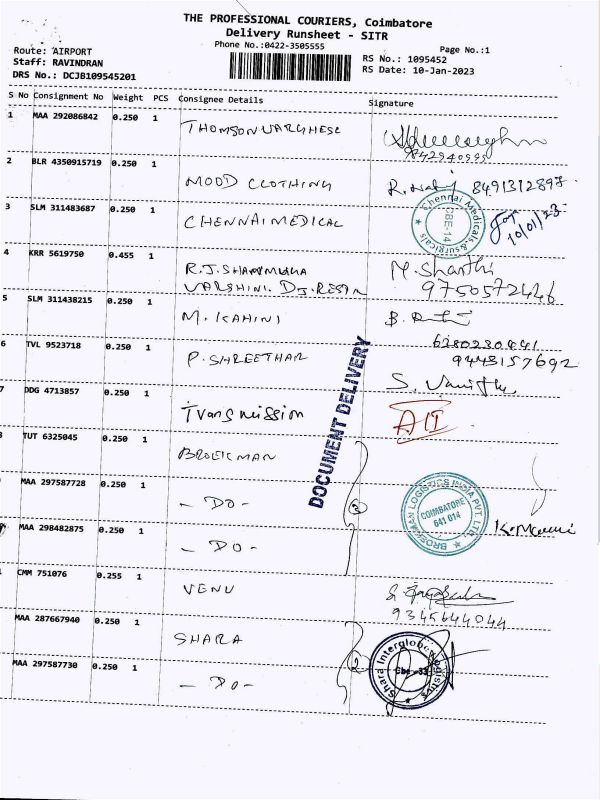 THE PROFESSIONAL COURIERS, Coimbatore
Delivery Runsheet - SITR
Phone No.:0422-3505555
Page No.:1
Route: AIRPORT
Staff: RAVINDRAN
DRS No.: DCJB109545201
RS No.: 1095452
RS Date: 10-Jan-2023
S No Consignment No Weight PCS Consignee Details Signature
1 MAA 292086842 0.250 1 THOMSON VARGHESE
9842940995
2 BLR 4350915719 0.250 1 MOOD CLOTHING 8491312897
3 SLM 311483687 0.250 1 CHENNAI MEDICAL
Chennai Medicals & Surgicals CBE-14
10/01/23
4 KRR 5619750 0.455 1 R.J. SHANMUGA M. Shanthi
VARSHINI. DJ. RESIN 9750572446
5 SLM 311438215 0.250 1 M. KAHINI
6380230441
6 TVL 9523718 0.250 1 P. SHREETHAR 9448157692
S. Vanitha
7 DDG 4713857 0.250 1 Transmission AIT
DOCUMENT DELIVERY
8 TUT 6325045 0.250 1 BROEKMAN
MAA 297587728 0.250 1 - DO - 3
BROEKMAN LOGISTICS INDIA PVT. LTD. COIMBATORE 641 014
MAA 298482875 0.250 1 - DO -
CMM 751076 0.255 1 VENU
9345644044
MAA 287667940 0.250 1 SHARA
MAA 297587730 0.250 1 - DO - 2
Shara Interglobe Logistics